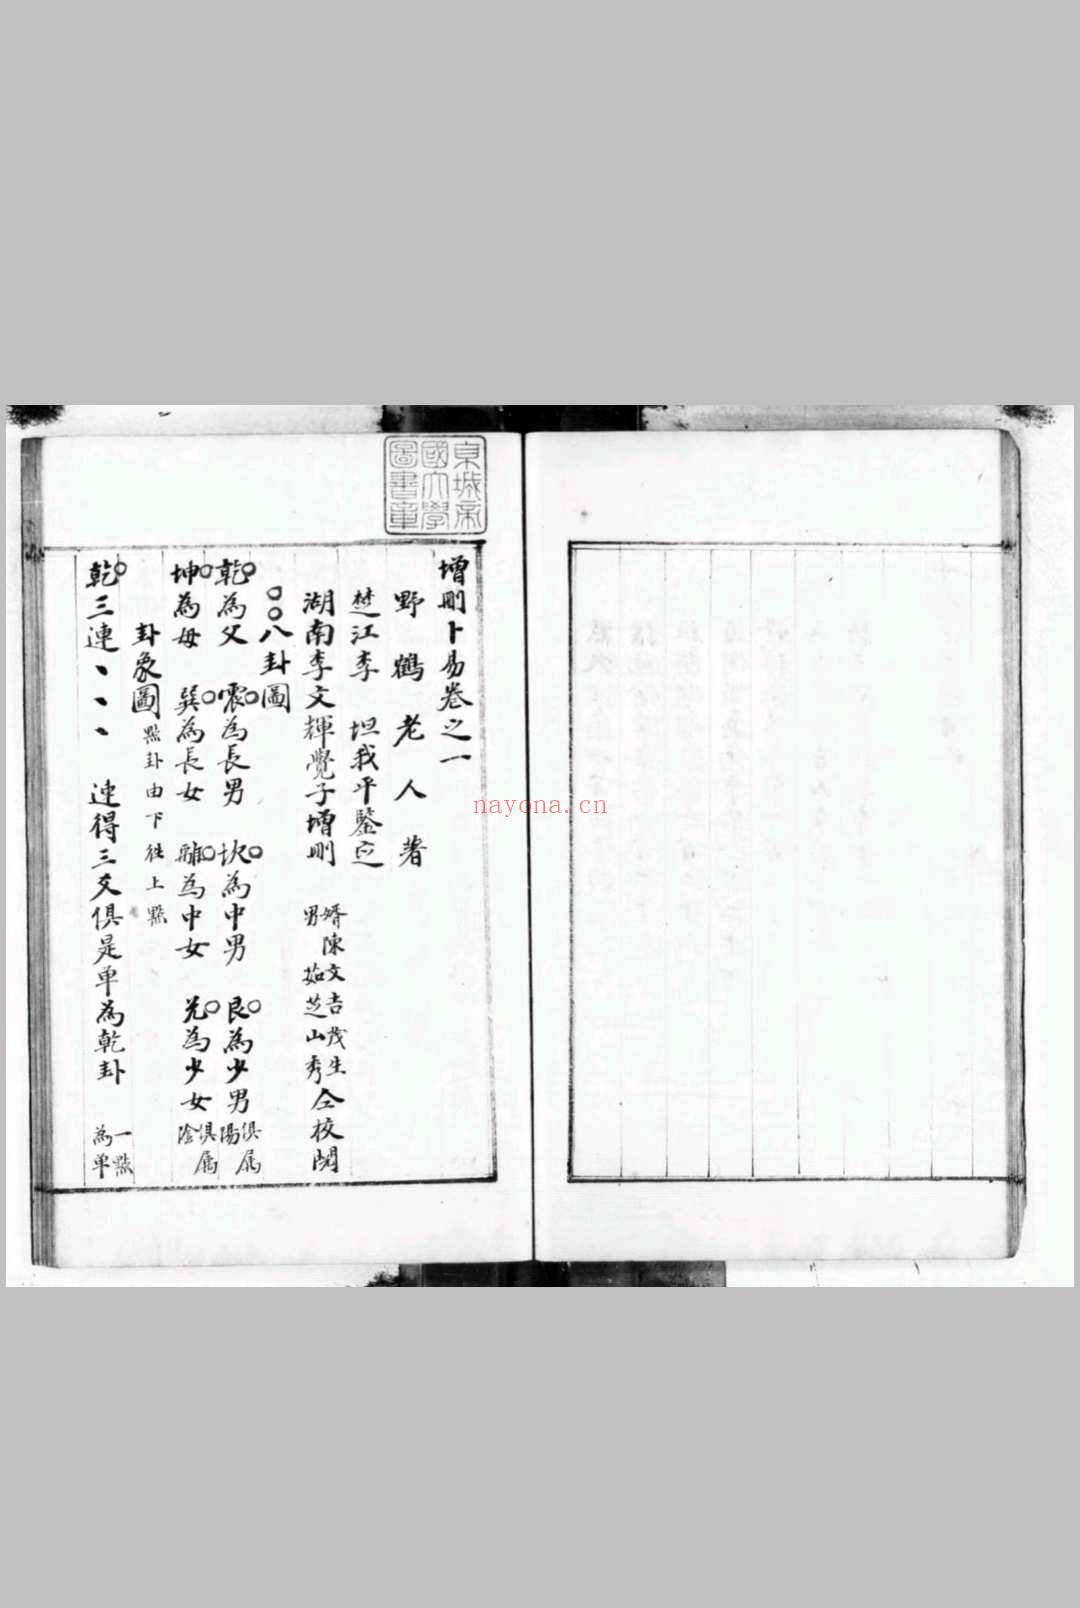 京城帝
國大學
圖書章
增刪卜易卷之一
野鶴老人著
楚江李 坦我平鑒定
湖南李文輝覺子增刪 婿陳文吉茂生 男 茹芝山秀 仝校閱
○○八卦圖
乾為父 震為長男 坎為中男 艮為少男 俱属陽
坤為母 巽為長女 離為中女 兌為少女 俱属陰
卦象圖 點卦由下徃上點
乾三連丶丶丶 連得三爻俱是单為乾卦 一點為单
nayona.cn